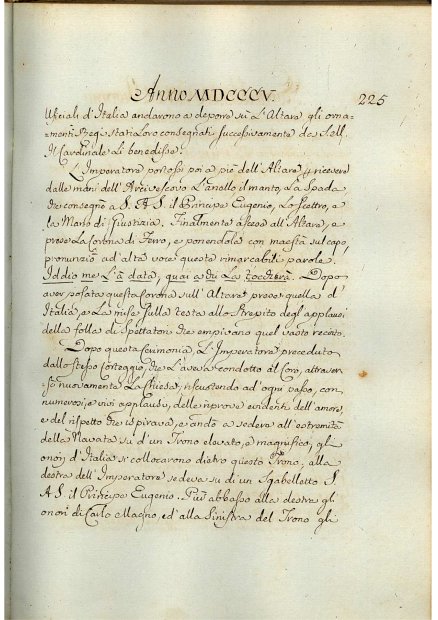 Anno MDCCCV. 225
Ufiziali d'Italia andarono a deporre sù L'Altare gli orna=
=menti Regi stati Loro consegnati successivamente da S. Em.
Il Cardinale Li benedisse.
L'Imperatore portossi poi a piè dell'Altare p ricevere
dalle mani dell'Arcivescovo L'anello, il manto, La Spada
che consegnò a S. A. S. il Principe Eugenio, Lo Scettro, e
la Mano di Giustizia. Finalmente ascese all'Altare, e
prese La Corona di Ferro, e ponendola con maestà sul capo,
pronunziò ad alta voce queste rimarcabili parole.
Iddio me L'à data, guai a chi La toccherà. Dopo
aver posata questa Corona sull'Altare prese quella d'
Italia, e La mise sulla testa allo strepito degl'applausi
della folla di Spettatori che empivano quel vasto recinto.
Dopo questa Cerimonia, L'Imperatore preceduto
dallo stesso Corteggio, che L'aveva condotto al Coro, attraver=
=sò nuovamente La Chiesa, riscuotendo ad ogni passo, con
numerosi, e vivi applausi, delle riprove evidenti dell'amore,
e del rispetto che ispirava, e andò a sedere all'estremità
della Navata su d'un Trono elevato, e magnifico, gli
onori d'Italia si collocarono dietro questo Trono, alla
destra dell'Imperatore sedeva su di un Sgabelletto S.
A. S. il Principe Eugenio. Più abbasso alla destra gli
onori di Carlo Magno, ed alla Sinistra del Trono gli